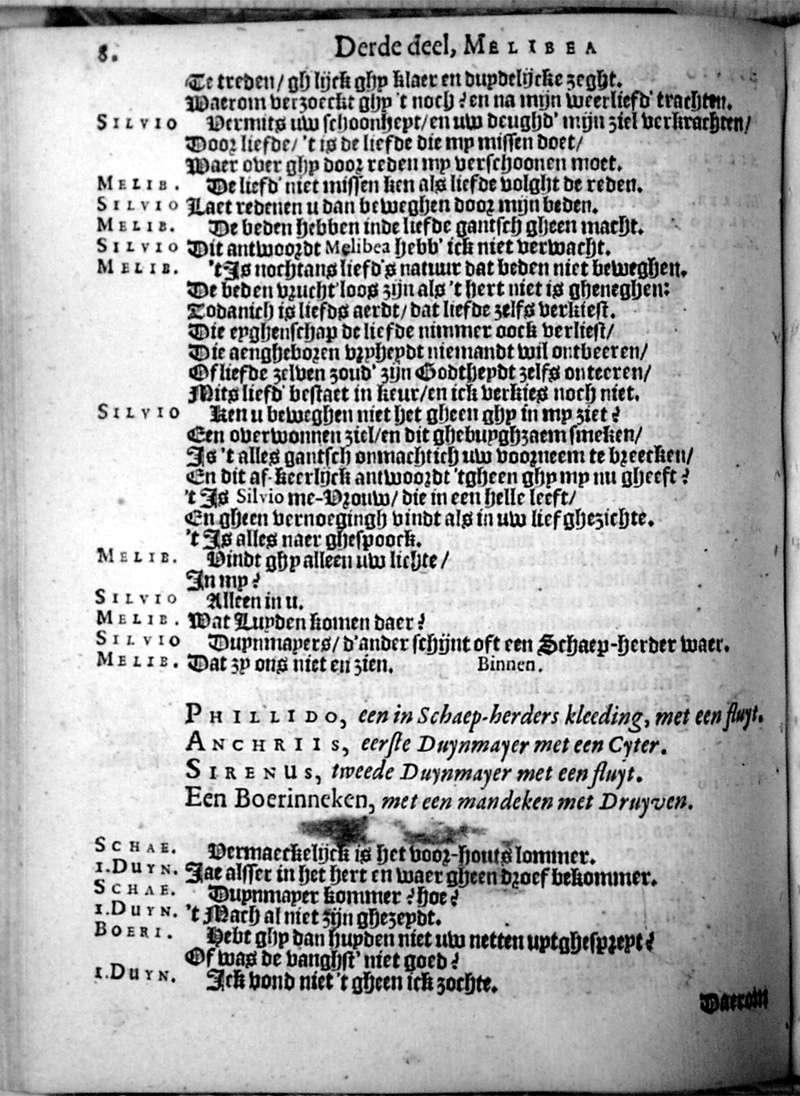 8.
Derde deel, MELIBEA
Te treden/ ghlijck ghy klaer en duydelijcke zeght.
Waerom verzoeckt ghy 't noch? en na mijn weerliefd' trachten.
SILVIO Vermits uw schoonheyt/ en uw deughd' mijn ziel verkrachten/
Door liefde/ 't is de liefde die my missen doet/
Waer over ghy door reden my verschoonen moet.
MELIB. De liefd' niet missen ken als liefde volght de reden.
SILVIO Laet redenen u dan beweghen door mijn beden.
MELIB. De beden hebben inde liefde gantsch gheen macht.
SILVIO Dit antwoordt Melibea hebb' ick niet verwacht.
MELIB. 'tIs nochtans liefd's natuur dat beden niet beweghen.
De beden vrucht'loos zijn als 't hert niet is gheneghen:
Zodanich is liefds aerdt/ dat liefde zelfs verkiest.
Die eyghenschap de liefde nimmer oock verliest/
Die aengheboren vryheydt niemandt wil ontbeeren/
Of liefde zelven zoud' zijn Godtheydt zelfs onteeren/
Mits liefd' bestaet in keur/ en ick verkies noch niet.
SILVIO Ken u beweghen niet het gheen ghy in my ziet?
Een overwonnen ziel/ en dit ghebuyghzaem smeken/
Is 't alles gantsch onmachtich uw voorneem te breecken/
En dit af-keerlijck antwoordt 'tgheen ghy my nu gheeft?
't Is Silvio me-Vrouw/ die in een helle leeft/
En gheen vernoegingh vindt als in uw lief ghezichte.
't Is alles naer ghespoock.
MELIB. Vindt ghy alleen uw lichte/
In my?
SILVIO Alleen in u.
MELIB. Wat Luyden komen daer?
SILVIO Duynmayers/ d'ander schijnt oft een Schaep-herder waer.
MELIB. Dat zy ons niet en zien. Binnen.
PHILLIDO, een in Schaep-herders kleeding, met een fluyt.
ANCHRIIS, eerste Duynmayer met een Cyter.
SIRENUS, tweede Duynmayer met een fluyt.
Een Boerinneken, met een mandeken met Druyven.
SCHAE. Vermaeckelijck is het voor-houts lommer.
1.DUYN. Jae alsser in het hert en waer gheen droef bekommer.
SCHAE. Duynmayer kommer? hoe?
1.DUYN. 't Mach al niet zijn ghezeydt.
BOERI. Hebt ghy dan huyden niet uw netten uytghespreyt?
Of was de vanghst' niet goed?
1.DUYN. Ick vond niet 't gheen ick zochte.
Daerom